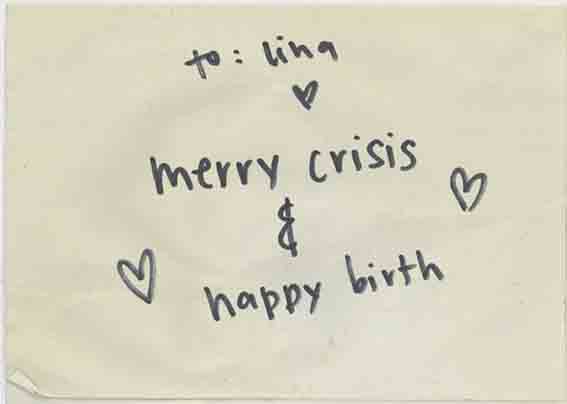 to: lina
merry crisis
&
happy birth